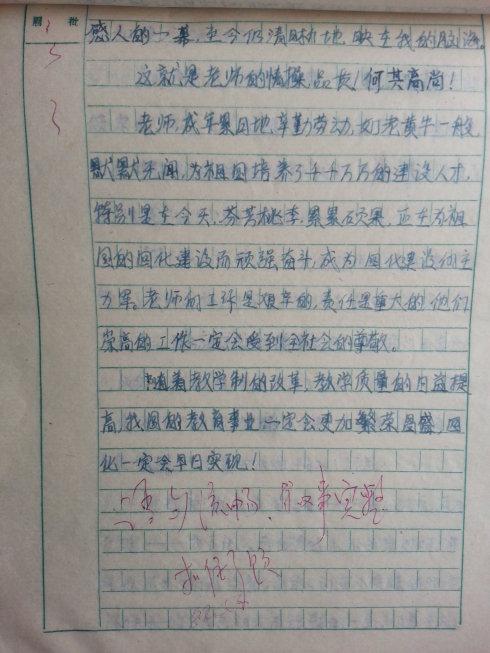 眉批
感人的一幕,至今仍清晰地映在我的脑海。
这就是老师的情操、品质!何其高尚!
老师,成年累月地辛勤劳动,如老黄牛一般
默默无闻,为祖国培养了千千万万的建设人才,
特别是在今天,芬芳桃李,累累硕果,正在为祖
国的四化建设而顽强奋斗,成为四化建设的主
力军。老师的工作是艰辛的,责任是重大的,他们
崇高的工作一定会受到全社会的尊敬。
随着教学制的改革,教学质量的日益提
高,我国的教育事业一定会更加繁荣昌盛,四
化一定会早日实现!
语句流畅,